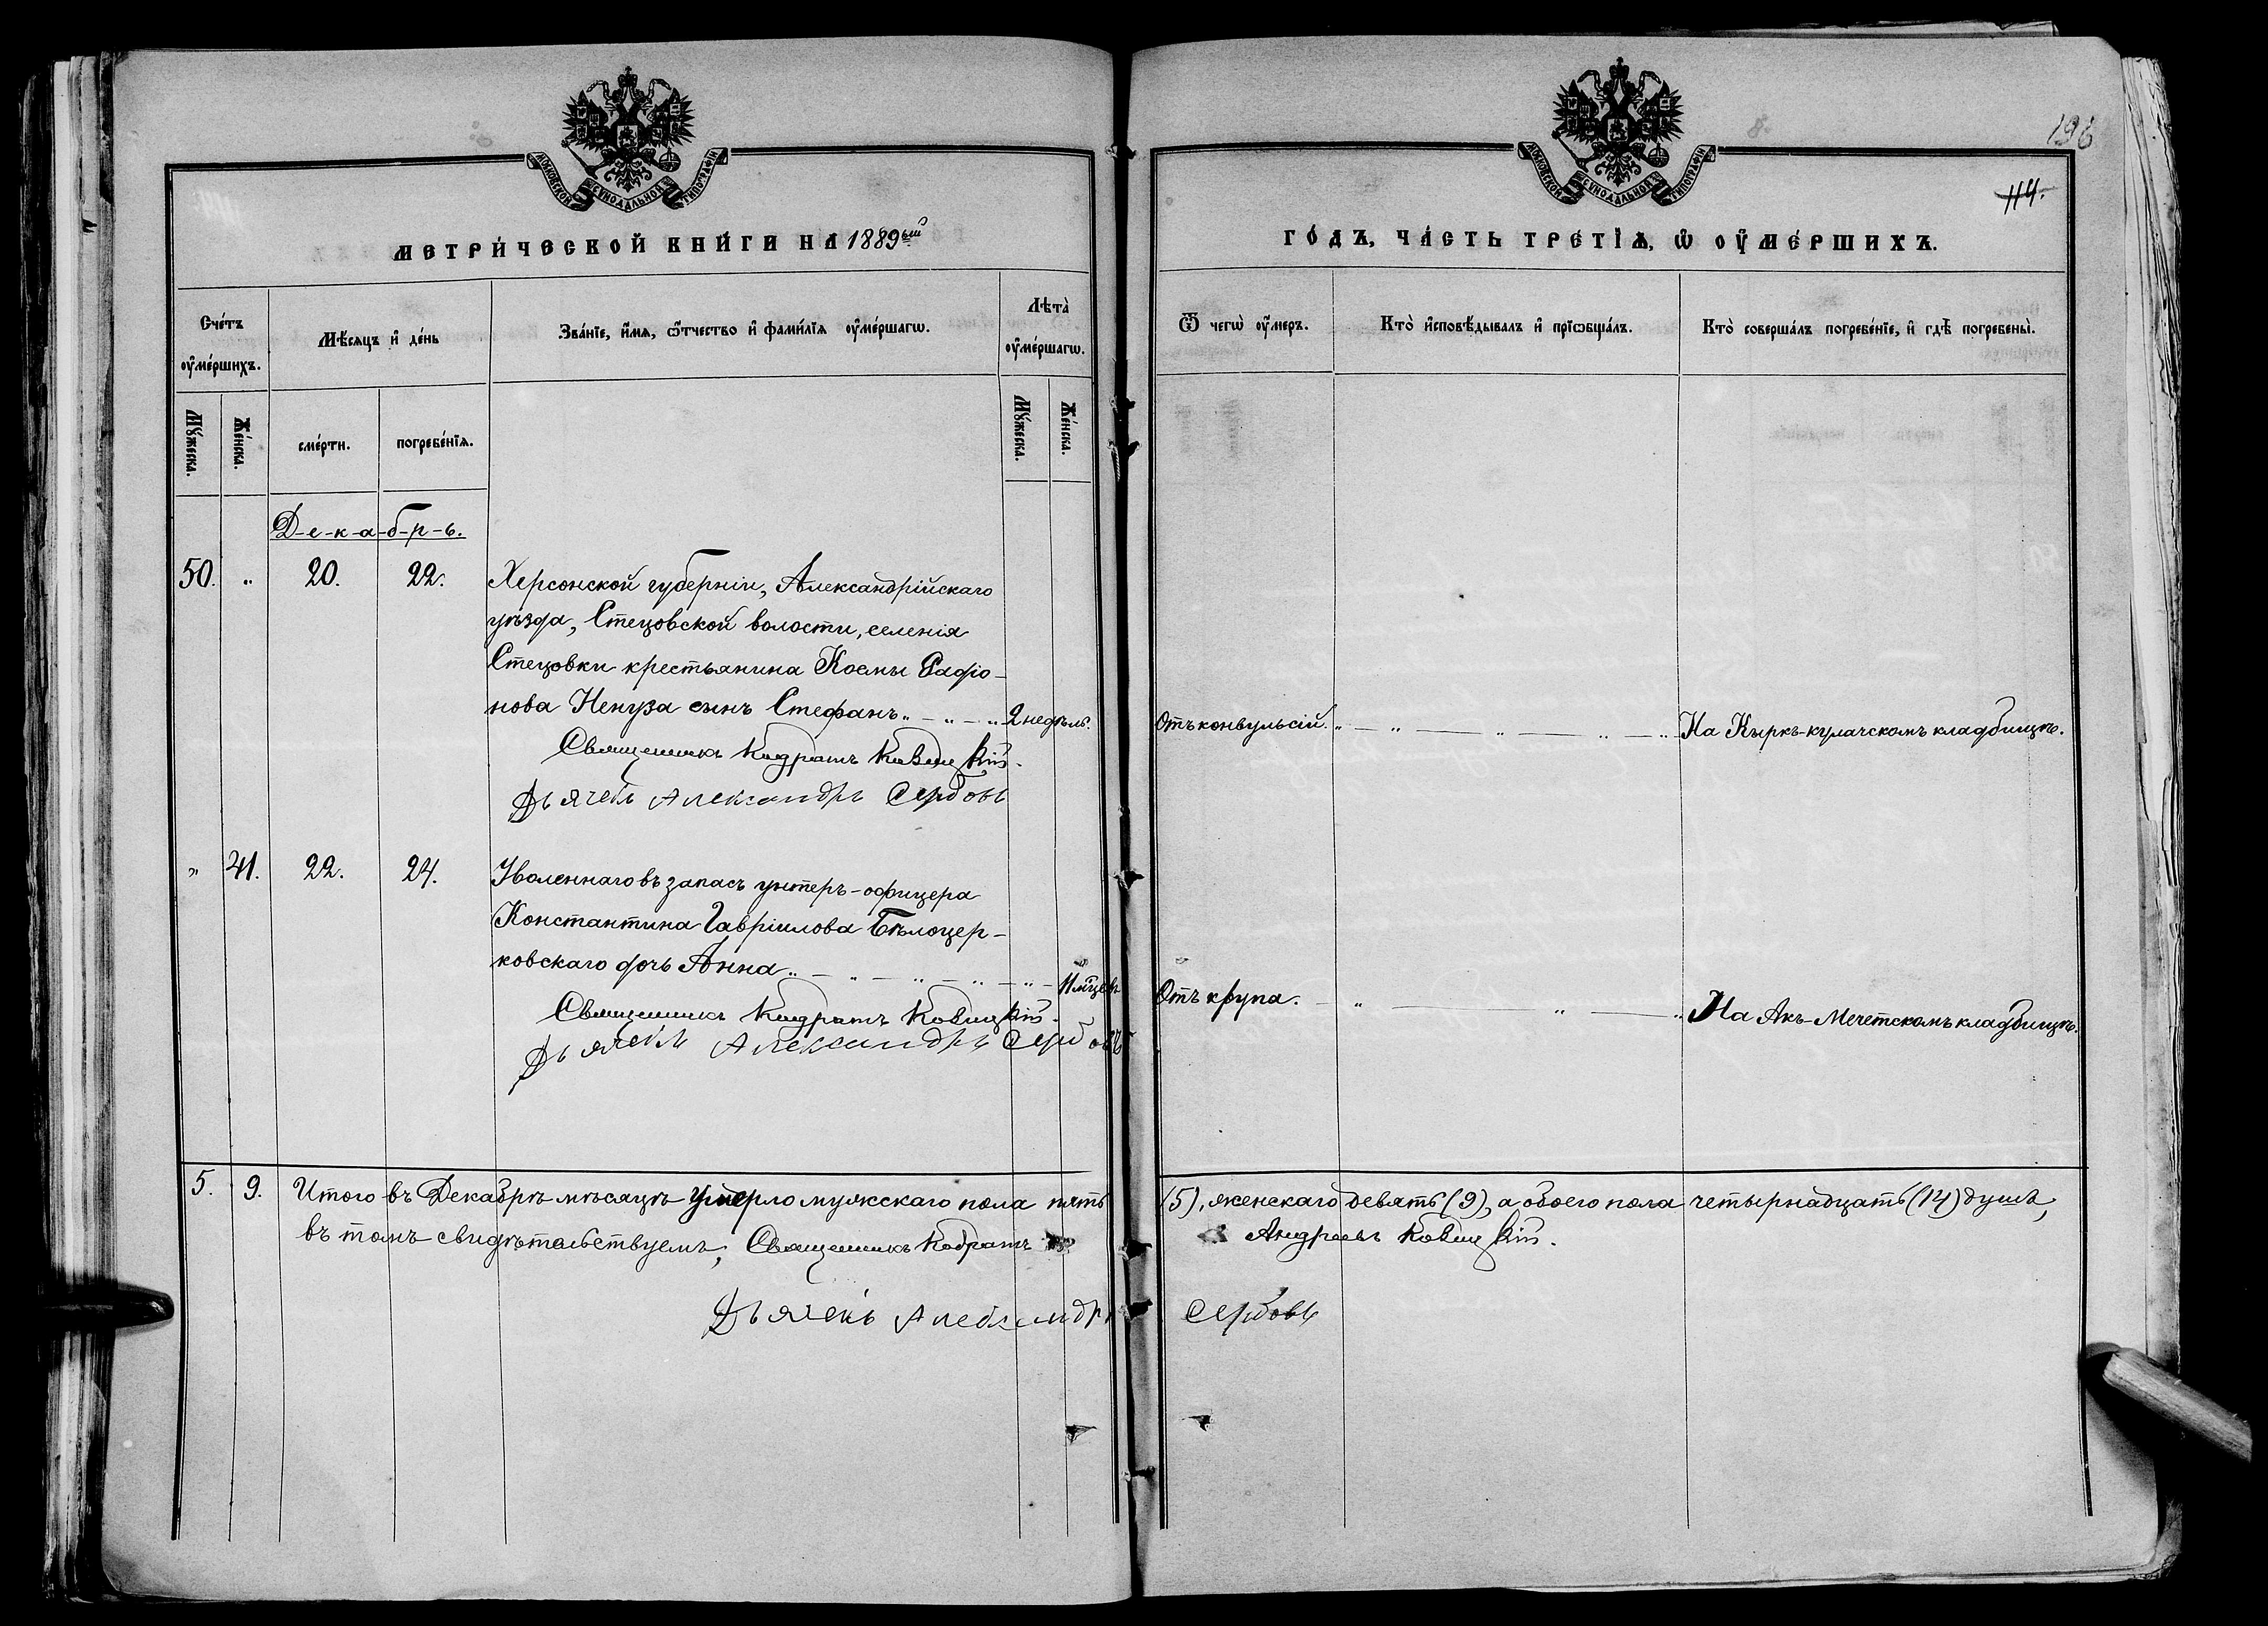 МОСКОВСКОЙ СѴНОДАЛЬНОЙ ТИПОГРАФІИ
МЕТРИ́ЧЕСКОЙ КНИ́ГИ НА 1889ый
Сче́тъ оу҆ме́ршихъ.
Мѣ́сяцъ и҆ де́нь
Зва́нїе, и҆́мѧ, ѻ҆́тчество и҆ фами́лїѧ оу҆ме́ршагѡ.
Лѣта̀ оу҆ме́ршагѡ.
Мꙋ́жеска.
Же́нска.
сме́рти.
погребе́нїѧ.
Мꙋ́жеска.
Же́нска.
Д-е-к-а-б-р-ь.
50. " 20. 22. Херсонской губерніи, Александрійскаго
уѣзда, Стецовской волости, селенія
Стецовки крестьянина Космы Сафро-
нова Ненуза сынъ Стефанъ. " — " — " 2 недѣль.
Священникъ Кодратъ Ковицкій.
Дьячекъ Александръ Сербовъ
" 41. 22. 24. Уволеннаго въ запасъ унтеръ-офицера
Константина Гавріилова Бѣлоцер-
ковскаго дочь Анна " — " — " — " — " — 11 мѣцевъ
Священникъ Кодратъ Ковицкій.
Дьячекъ Александръ Сербовъ
5. 9. Итого въ Декабрѣ мѣсяцѣ умерло мужскаго пола пять
въ томъ свидѣтельствуемъ; Священникъ Кодратъ
Дьячекъ Александръ
МОСКОВСКОЙ СѴНОДАЛЬНОЙ ТИПОГРАФІИ
196
114.
ГО́ДЪ, ЧА́СТЬ ТРЕ́ТЇѦ, Ѡ҆ ОУ҆МЕ́РШИХЪ.
Ѿ чегѡ̀ оу҆́меръ.
Кто̀ и҆сповѣ́дывалъ и҆ прїѡбща́лъ.
Кто̀ соверша́лъ погребе́нїе, и҆ гдѣ̀ погребены̀.
Отъ конвульсій. " — " — " — " — " На Кыркъ-кулачскомъ кладбищѣ.
Отъ крупа. — " — " — " На Акъ-Мечетскомъ кладбищѣ.
(5), женскаго девять (9), а обоего пола четырнадцать (14) душъ,
Андреевъ Ковицкій.
Сербовъ